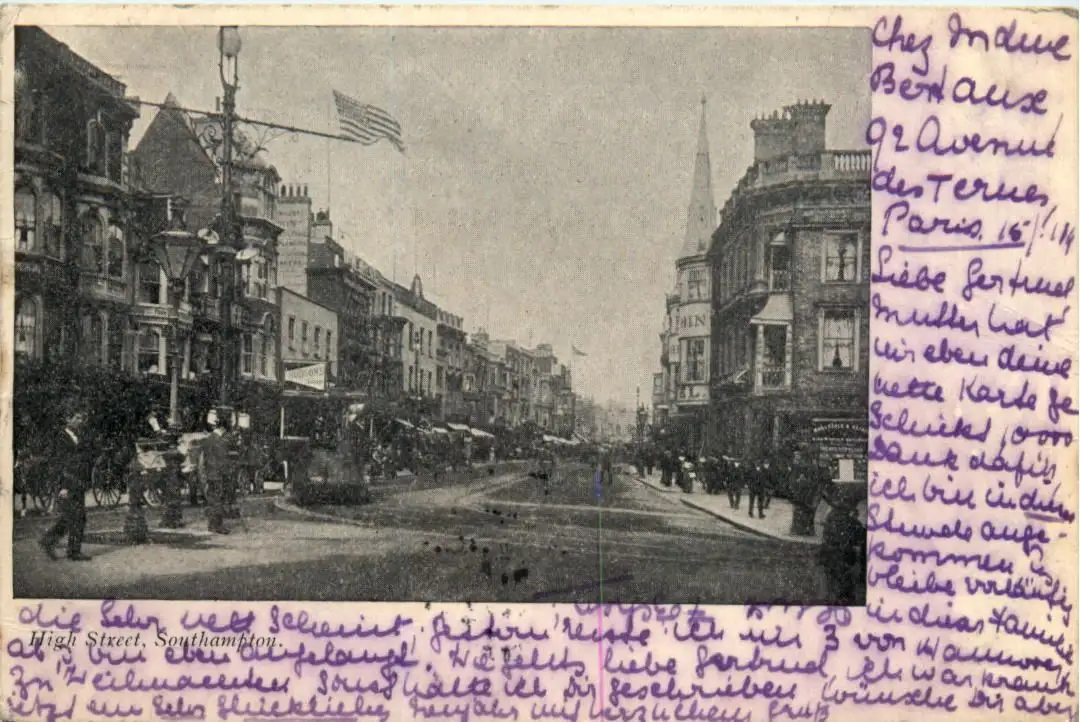 Chez Mdme
Bertaux
92 Avenue
des Ternes,
Paris. 15/
Liebe Gertrud
Mutter hat
mir eben deine
nette Karte ge
schickt, 1000
Dank dafür,
ich bin in dieser
Stunde ange-
kommen u
bleibe vorläufig
in dieser Familie
die sehr nett scheint. Gestern reiste ich um 3 von Hannover
ab u. bin eben angelangt. Wie gehts liebe Gertrud, ich war krank
zu Weihnachten sonst hätte ich Dir geschrieben, wünsche Dir aber
jetzt ein sehr glückliches Neujahr mit herzlichem Gruß
High Street, Southampton.